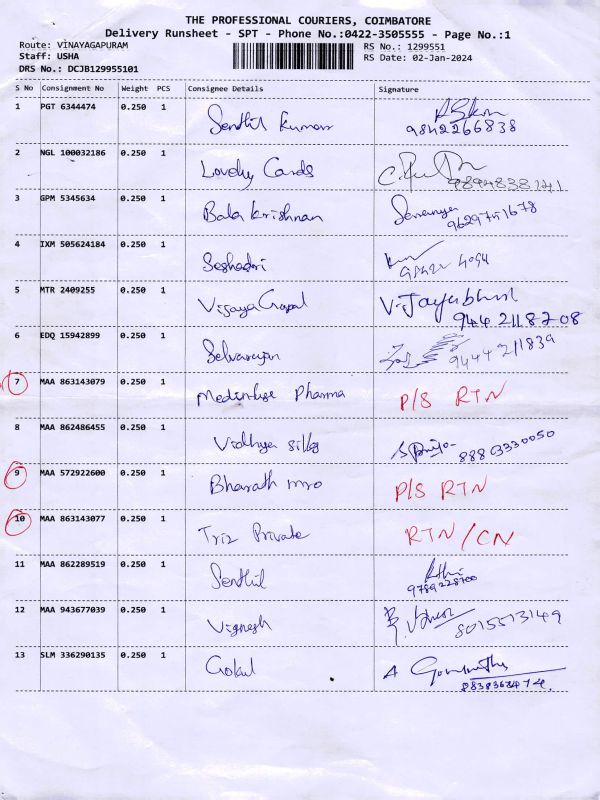 THE PROFESSIONAL COURIERS, COIMBATORE
Delivery Runsheet - SPT - Phone No.:0422-3505555 - Page No.:1
Route: VINAYAGAPURAM RS No.: 1299551
Staff: USHA RS Date: 02-Jan-2024
DRS No.: DCJB129955101
S No Consignment No Weight PCS Consignee Details Signature
1 PGT 6344474 0.250 1 Senthil Kumar
9842266838
2 NGL 100032186 0.250 1 Lovely Cards
9894838141
3 GPM 5345634 0.250 1 Bala Krishnan
9629751678
4 IXM 505624184 0.250 1 Seshadri
5 MTR 2409255 0.250 1 Vijaya Gopal
9442118208
6 EDQ 15942899 0.250 1 Selvarajan
9444211839
7 MAA 863143079 0.250 1 Pharma P/S RTN
8 MAA 862486455 0.250 1 Vidhya Silks
88803330050
9 MAA 572922600 0.250 1 Bharath mro P/S RTN
10 MAA 863143077 0.250 1 Triz Private RTN/CN
11 MAA 862289519 0.250 1 Senthil
9789228700
12 MAA 943677039 0.250 1 Vignesh
8015513149
13 SLM 336290135 0.250 1 Gokul A